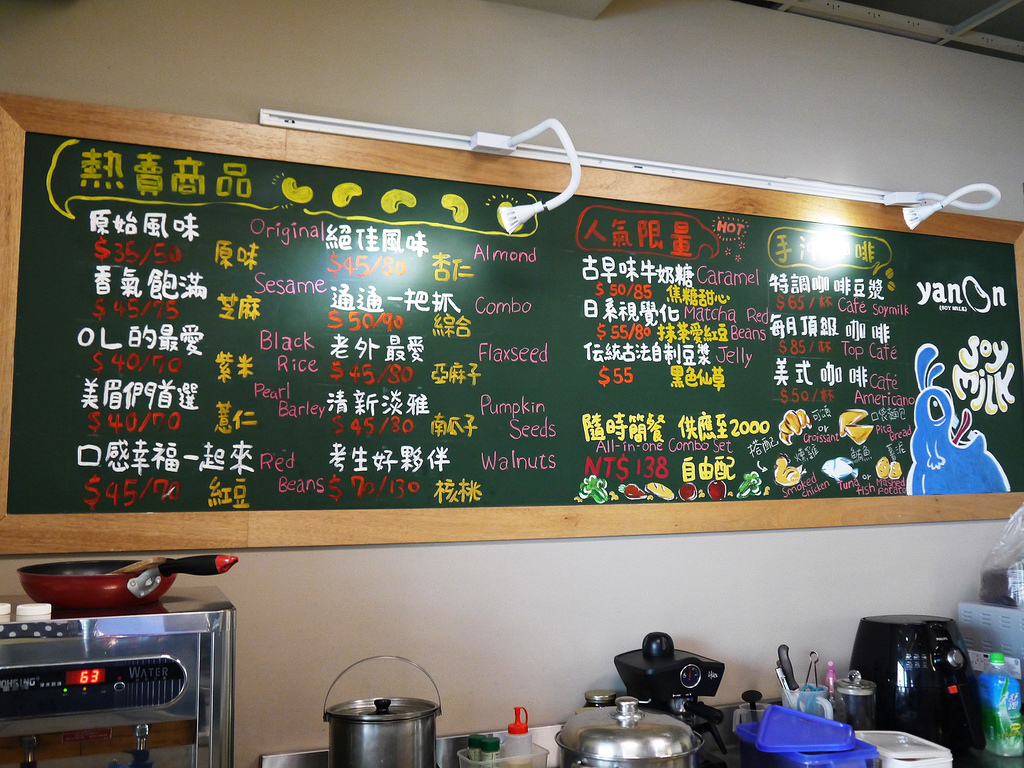 熱賣商品
原始風味 Original
$35/50 原味
香氣飽滿 Sesame
$45/75 芝麻
OL的最愛 Black
$40/70 紫米 Rice
美眉們首選 Pearl
$40/70 薏仁 Barley
口感幸福一起來 Red
$45/70 紅豆 Beans
絕佳風味 Almond
$45/80 杏仁
通通一把抓 Combo
$50/90 綜合
老外最愛 Flaxseed
$45/80 亞麻子
清新淡雅 Pumpkin
$45/80 南瓜子 Seeds
考生好夥伴 Walnuts
$70/130 核桃
人氣限量 HOT
古早味牛奶糖 Caramel
$50/85 焦糖甜心
日系視覺化 Matcha Red
$55/80 抹茶愛紅豆 Beans
伝統古法自制豆漿 Jelly
$55 黑色仙草
隨時簡餐 供應至2000
All-in-one Combo Set
NT$138 自由配
搭配
可頌 or 口袋麵包
Croissant Pita Bread
燻雞 鮪魚 or
Smoked Chicken Tuna Fish Mashed Potato
咖啡
特調咖啡豆漿
$65/杯 Café Soymilk
每月頂級咖啡
$85/杯 Top Café
美式咖啡 Café
$50/杯 Americano
yanOn
(SOY MILK)
Soy Milk
63
WATER